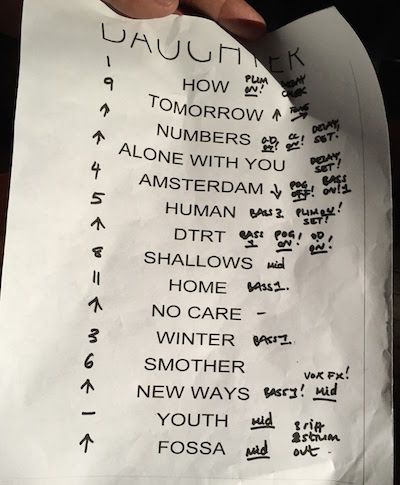 DAUGHTER
1
9 HOW PLIM ON! DELAY
↑ TOMORROW ↑
↑ NUMBERS O.D ON! ON! DELAY SET!
ALONE WITH YOU DELAY SET!
4 AMSTERDAM ↓ POG OFF! BASS ON! 1
5 HUMAN BASS 3. PLIM ON! SET!
↑ DTRT BASS 1 POG ON! OD ON!
8 SHALLOWS Mid
11 HOME BASS 1.
↑ NO CARE -
3 WINTER BASS 1.
6 SMOTHER VOX FX!
↑ NEW WAYS BASS 1! Mid
- YOUTH Mid 3 riff 2 strum
↑ FOSSA Mid out.